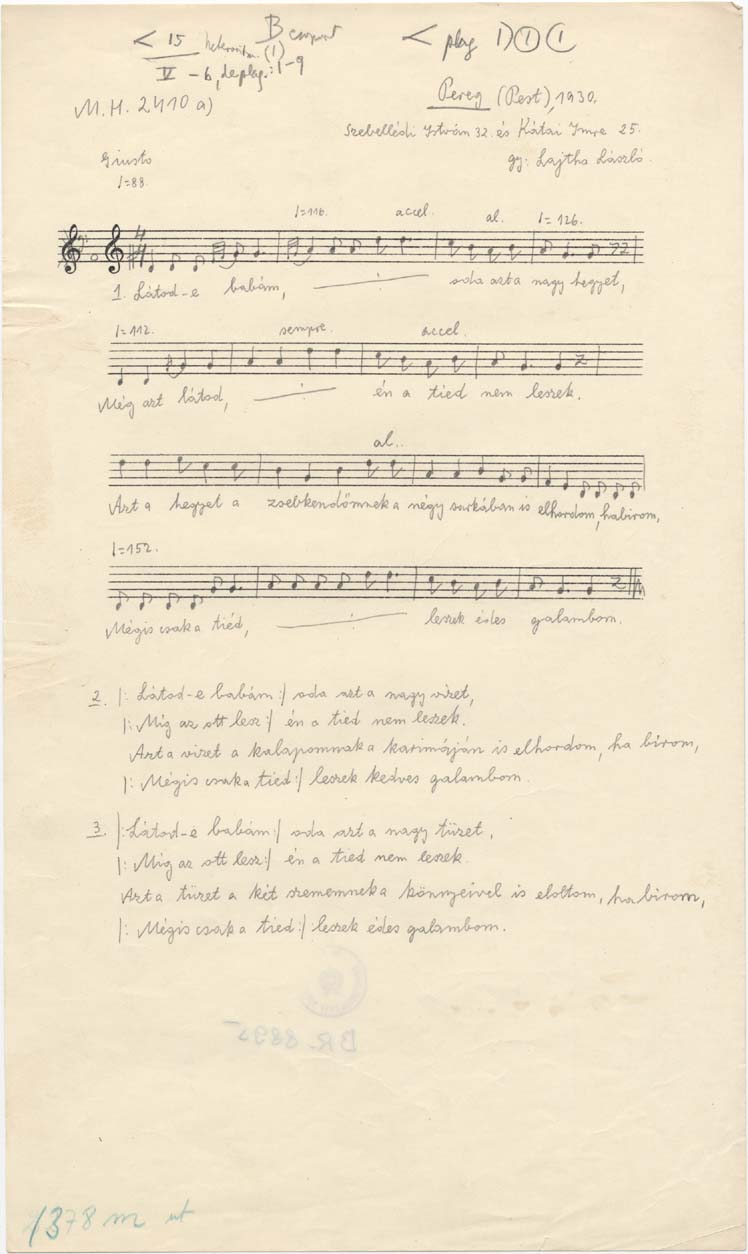 < 15 heterometr. (1) B csoport < plag 1) (1) (1
V – 6, de plag.: 1–9
M.H. 2410 a)
Pereg (Pest), 1930.
Szebellédi István 32. és Kátai Imre 25.
Giusto
gy: Lajtha László.
♩=88.
♩=116. accel. al. ♩=126.
1. Látod-e babám, —·/·— oda azt a nagy hegyet,
♩=112. sempre. accel.
Még azt látod, —·/·— én a tied nem leszek.
al..
Azt a hegyet a zsebkendőmnek a négy sarkában is elhordom, ha birom,
♩=152.
Mégis csak a tiéd, —·/·— leszek édes galambom.
2. |: Látod-e babám :| oda azt a nagy vizet,
|: Míg az ott lesz :| én a tied nem leszek.
Azt a vizet a kalapomnak a karimáján is elhordom, ha birom,
|: Mégis csak a tied :| leszek kedves galambom.
3. |: Látod-e babám :| oda azt a nagy tüzet,
|: Míg az ott lesz :| én a tied nem leszek.
Azt a tüzet a két szememnek a könnyeivel is eloltom, ha birom,
|: Mégis csak a tied :| leszek édes galambom.
BR 8895
1378 m